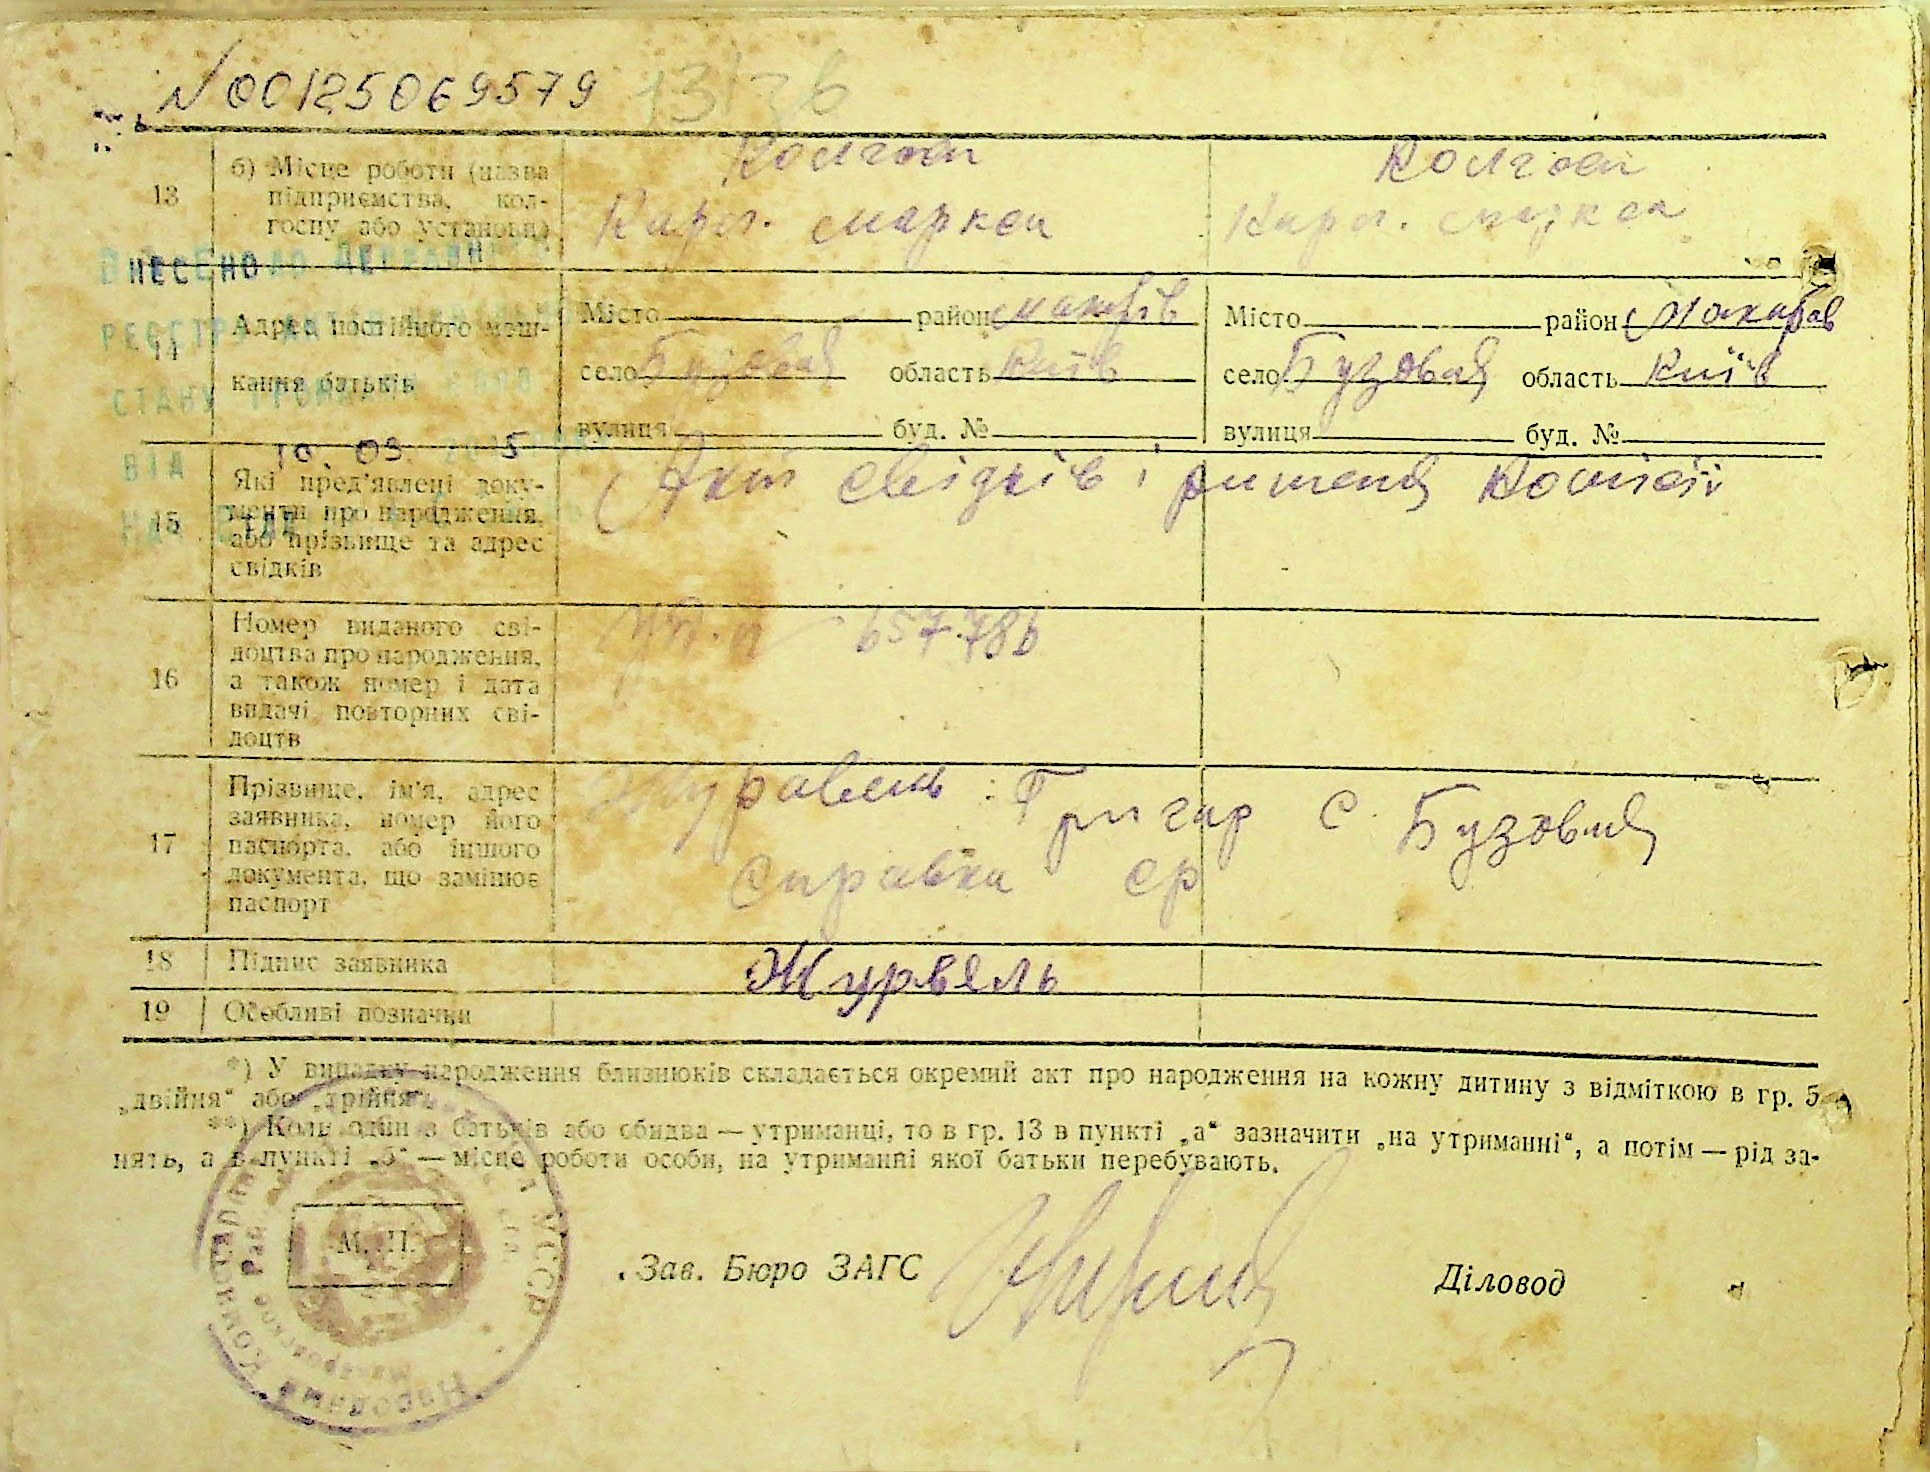 N00125069579
13 б) Місце роботи (назва підприємства, колгоспу або установи)
Колгосп Карл. маркса
Колгосп Карл. маркса
ВНЕСЕНО ДО ДЕРЖАВНОГО
РЕЄСТРУ
СТАНУ ГРОМАДЯН
ВІД 10. 09. 5
14 Адрес постійного меш-
кання батьків
Місто район Макарів
село Бузовая область Київ
вулиця буд. №
Місто район Макарів
село Бузовая область Київ
вулиця буд. №
15 Які пред'явлені доку-
менти про народження,
або прізвище та адрес
свідків
Акт свідків і ришеня Комісіі
16 Номер виданого сві-
доцтва про народження,
а також номер і дата
видачі повторних сві-
доцтв
657786
17 Прізвище, ім'я, адрес
заявника, номер його
паспорта, або іншого
документа, що замінює
паспорт
Журавель Григар с. Бузовая
справка ср
18 Підпис заявника
Журвель
19 Особливі позначки
*) У випадку народження близнюків складається окремий акт про народження на кожну дитину з відміткою в гр. 5
„двійня“ або „трійня“.
**) Коли один з батьків або обидва — утриманці, то в гр. 13 в пункті „а“ зазначити „на утриманні“, а потім — рід за-
нять, а в пункті „б“ — місце роботи особи, на утриманні якої батьки перебувають.
М. П.
Зав. Бюро ЗАГС
Діловод